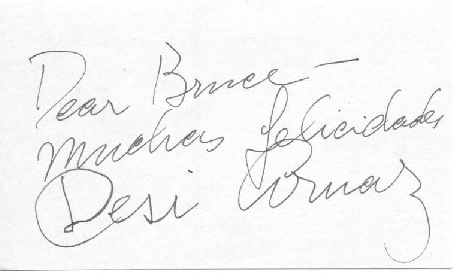 Dear Bruce —
Muchas felicidades
Desi Arnaz